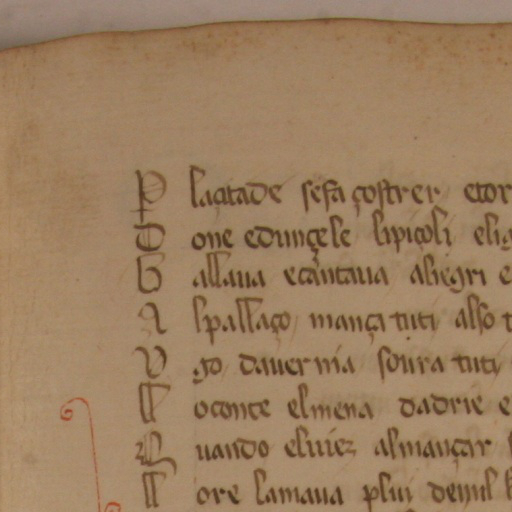 P lacitade se fa çostrer etor
D one edunçele lipiçoli elig
B allaua ecantaua aliegri e
A lpallaço mançi tuti also t
V go dauernia soura tuti
L oconte elmena dadrie e
Q uando eluiez almançir
L ore lamaua plui demil